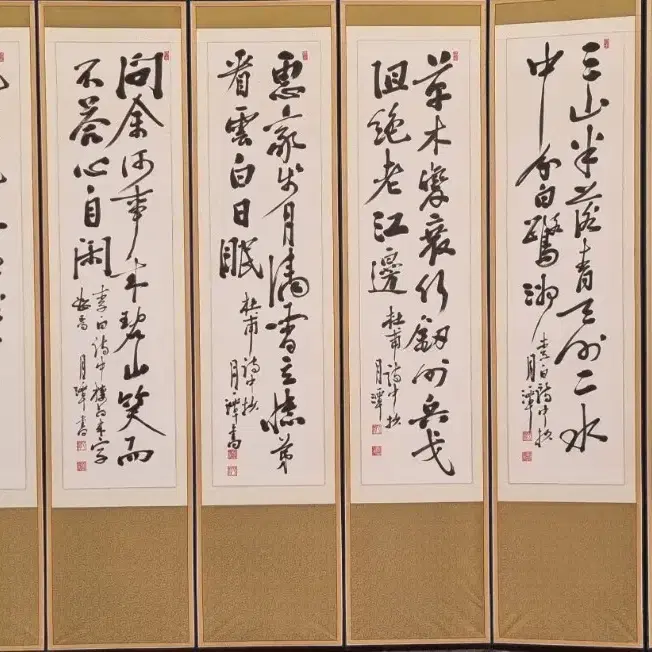 三山半落青天外二水
中分白鷺洲
李白詩中抄
月潭
草木變衰行劍外兵戈
阻絶老江邊
杜甫詩中抄
月潭
思家步月清宵立憶弟
看雲白日眠
杜甫詩中抄
月潭書
問余何事碧山笑而
不答心自閑
李白詩中本字
月潭書